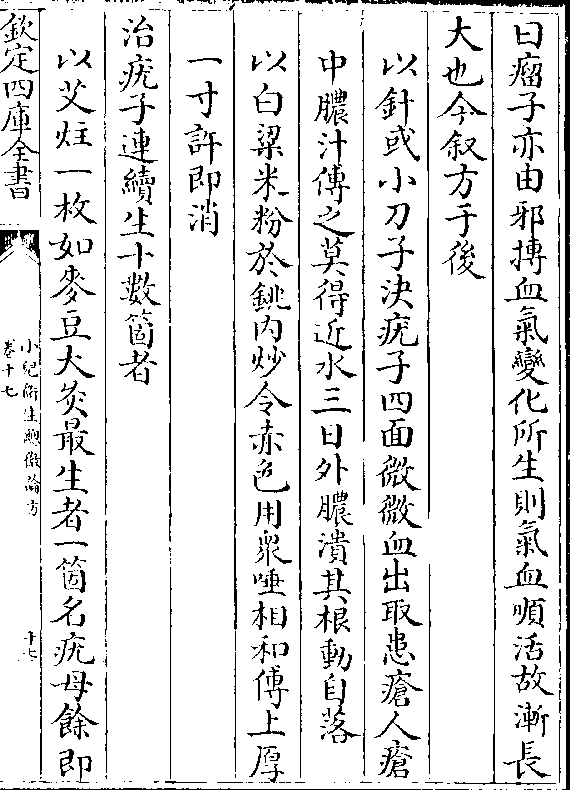 曰瘤子亦由邪搏血氣變化所生則氣血順活故漸長
大也今叙方于後
以針或小刀子決疣子四面微微血出取患瘡人瘡
中膿汁傅之莫得近水三日外膿潰其根動自落
以白粱米粉於銚内炒令赤色用衆唾相和傅上厚
一寸許即消
治疣子連續生十數箇者
以艾炷一枚如麥豆大灸最生者一箇名疣母餘即
欽定四庫全書
小兒衛生總微論方
卷十七
十七